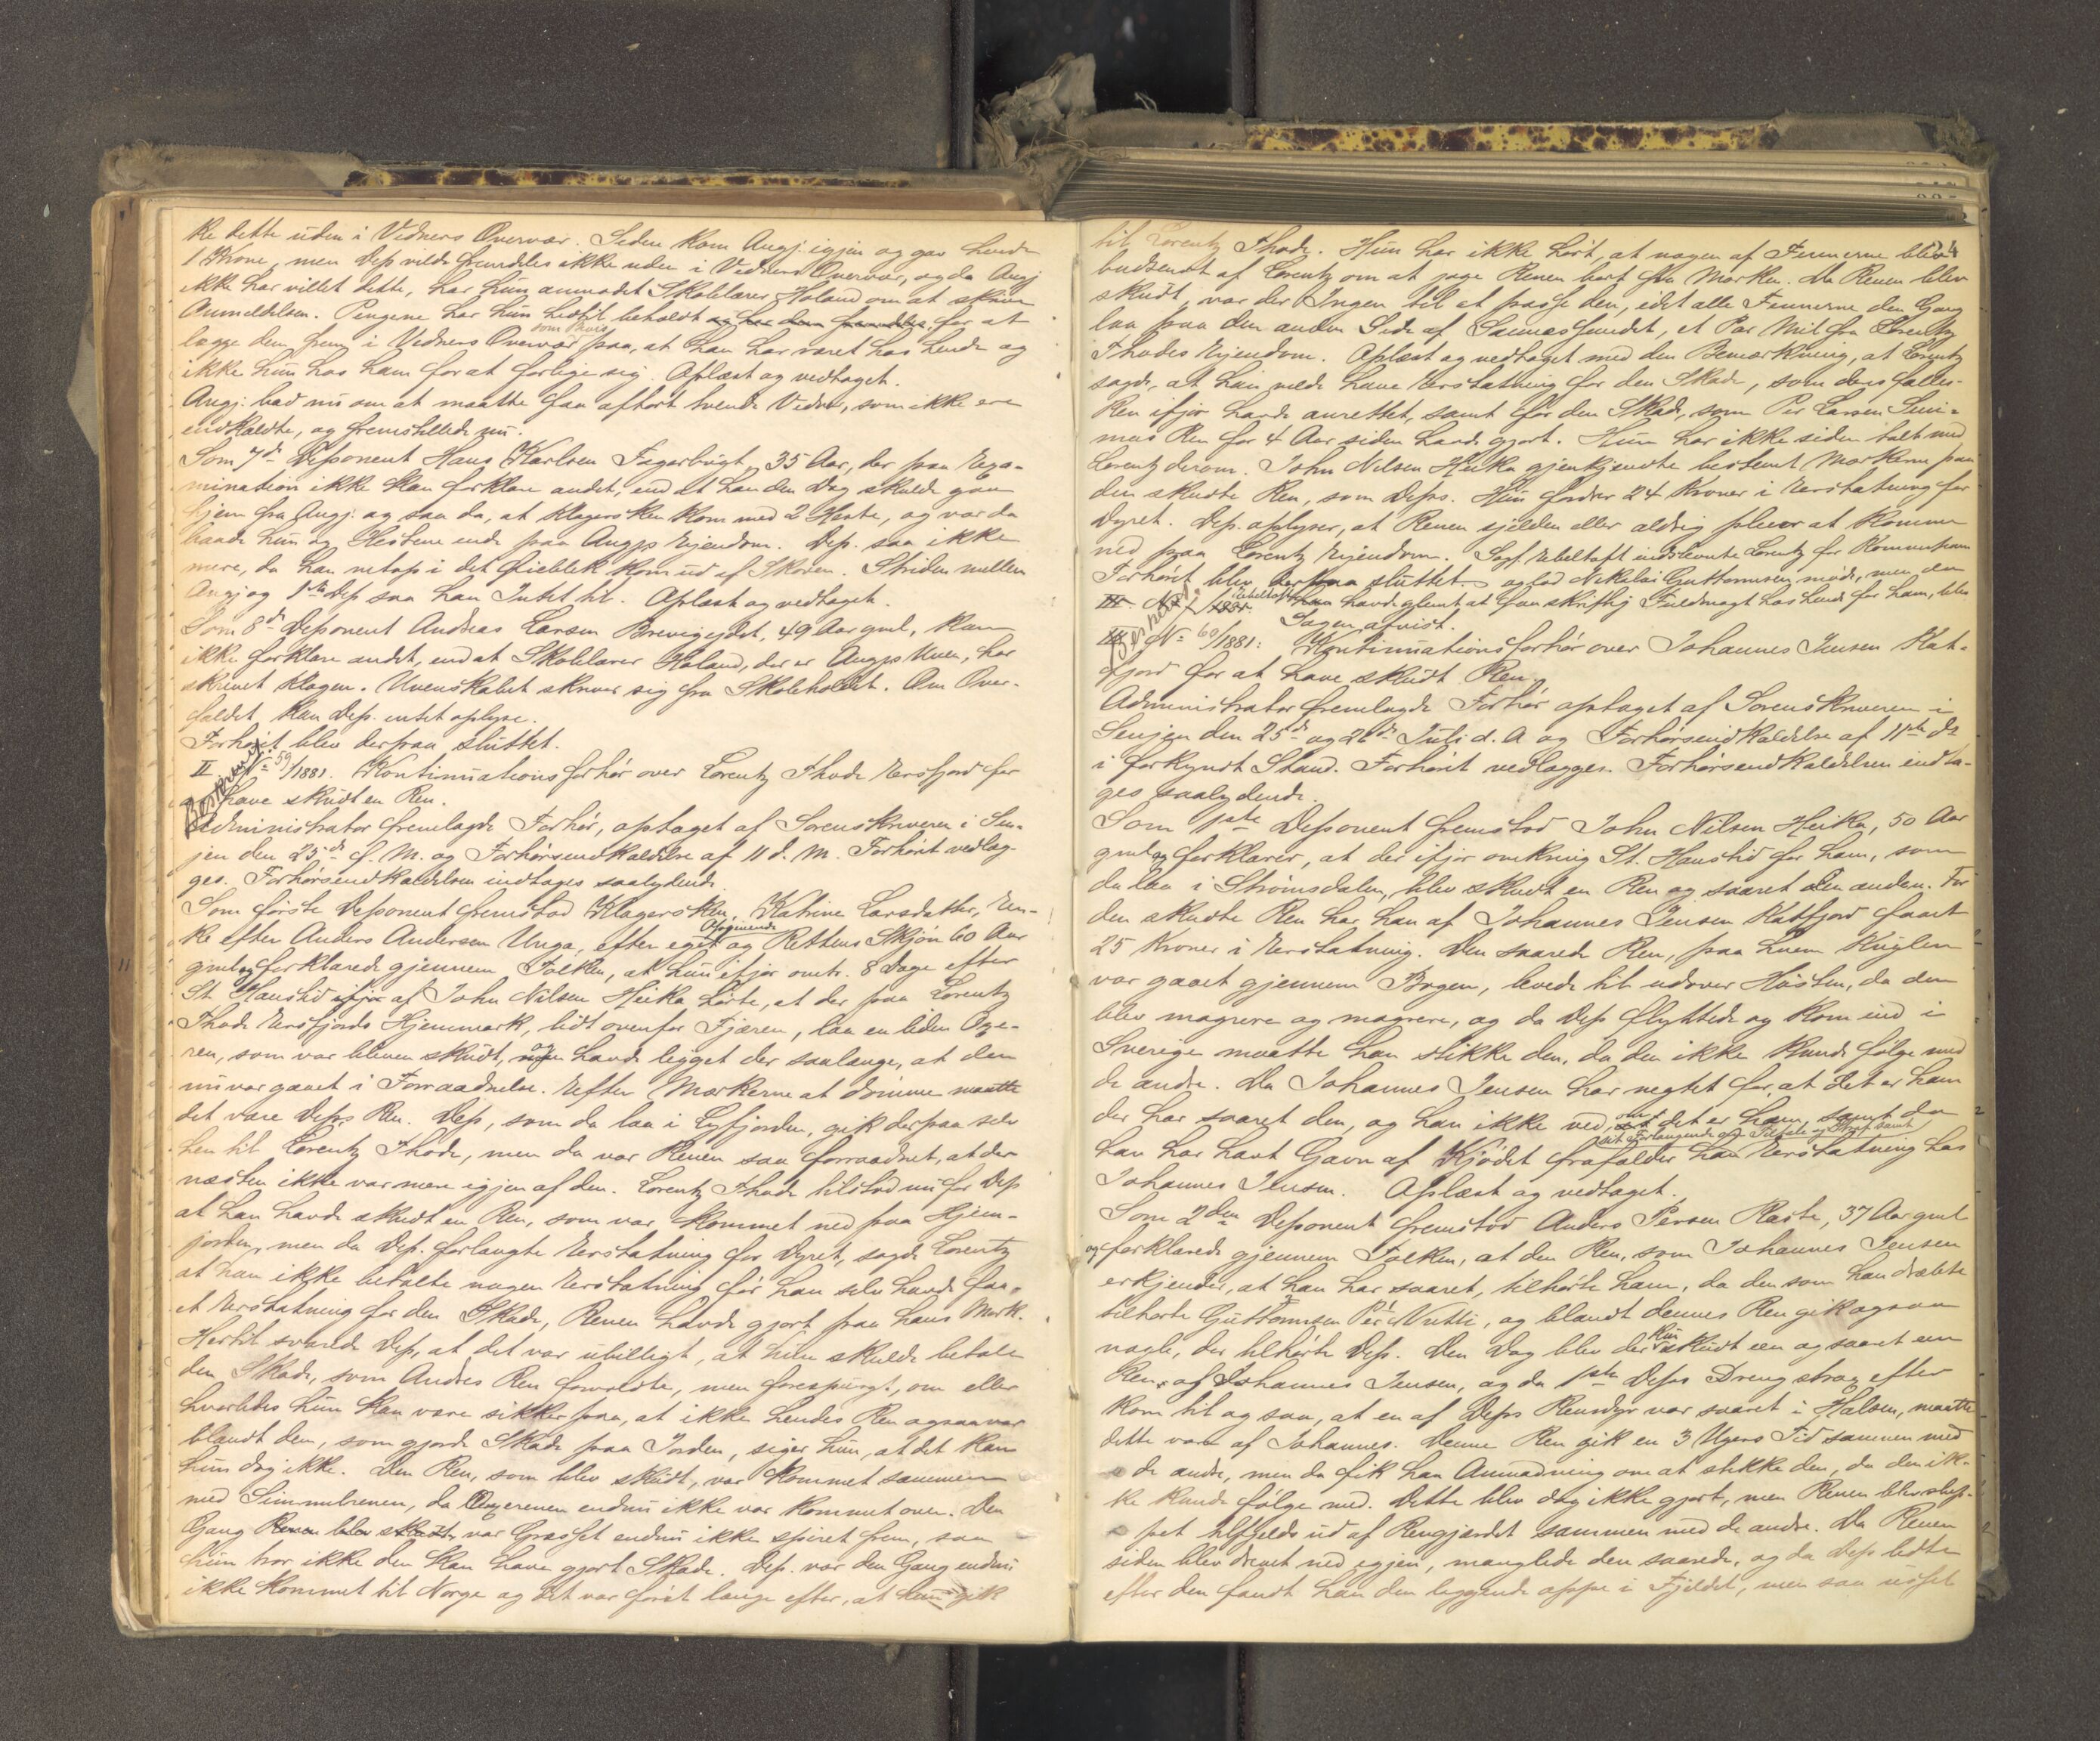 ke dette uden i Vidners Overvær. Siden kom Angj. igjen og gav hende
1 Krone, men Dep vilde fremdeles ikke uden i Vidners Overvær, og da Angj
ikke har villet dette, har hun anmodet Skolelærer Holand om at skrive
Anmeldelsen. Pengene har hun hidtil beholdt og har dem fremdeles for at
lægge dem frem i Vidners Overvær som Bevis paa, at han har været hos hende og
ikke hun hos ham for at forlige sig. Oplæst og vedtaget.
Angj. bad nu om at maatte faa afhørt tvende Vidner, som ikke ere
indkaldte, og fremstillede nu.
Som 7de Deponent Hans Karlsen Fagerbugt, 35 Aar, der paa Exa-
mination ikke kan forklare andet, end at han den Dag skulde gaa
hjem fra Angj. og saa da, at Klagersken kom med 2 Heste, og var da
baade hun og Hestene inde paa Angjs Eiendom. Dep. saa ikke
mere, da han netop i det Øieblik kom ud af Skoven. Striden mellem
Angj og 1ste Dep saa han Intet til. Oplæst og vedtaget.
Som 8de Deponent Andreas Larsen Breivigeidet, 49 Aar gml, kan
ikke forklare andet, end at Skolelærer Holand, der er Angjs Uven, har
skrevet Klagen. Uvenskabet skriver sig fra Skoleholdet. Om Over-
faldet kan Dep. intet oplyse.
Forhøret blev derpaa sluttet.
II No 59/1881. Kontinuationsforhør over Lorentz Thode Ersfjord for
at have skudt en Ren.
Administrator fremlagde Forhør, optaget af Sorenskriveren i Sen-
jen den 25de f. M. og Forhørsindkaldelse af 11 d. M. Forhøret vedlæg-
ges. Forhørsindkaldelsen indtages saalydende
Som første Deponent fremstod Klagersken, Katrine Larsdatter, En-
ke efter Anders Andersen Unga, efter eget Opgivende og Rettens Skjøn 60 Aar
gml og forklarede gjennem Tolken, at hun ifjor omtr. 8 Dage efter
St. Hanstid ifjor af John Nilsen Heika hørte, at der paa Lorentz
Thode Ersfjords Hjemmark, lidt ovenfor Fjæren, laa en liden Oxe-
ren, som var bleven skudt, og havde ligget der saalænge, at den
nu var gaaet i Forraadnelse. Efter Mærkerne at dømme maatte
det være Deps Ren. Dep, som da laa i Lyfjorden, gik derpaa selv
hen til Lorentz Thode, men da var Renen saa forraadnet, at der
næsten ikke var mere igjen af den. Lorentz Thode tilstod nu for Dep
at han havde skudt en Ren, som var kommet ned paa Hjem-
jorden, men da Dep. forlangte Erstatning for Dyret, sagde Lorentz
at han ikke betalte nogen Erstatning før han selv havde faa-
et Erstatning for den Skade, Renen havde gjort paa hans Mark.
Hertil svarede Dep, at det var ubilligt, at hun skulde betale
den Skade, som Andres Ren forvoldte, men forespurgt, om eller
hvorledes hun kan være sikker paa, at ikke hendes Ren ogsaa var
blandt dem, som gjorde Skade paa Jorden, siger hun, at det kan
hun dog ikke. Den Ren, som blev skudt, var kommet sammen
med Simmelrenen, da Oxerenen endnu ikke var kommet over. Den
Gang Renen blev skudt var Græsset endnu ikke spiret frem, saa
hun tror ikke den kan have gjort Skade. Dep. var den Gang endnu
ikke kommet til Norge og det var først længe efter, at hun gik
24
til Lorentz Thode. Hun har ikke hørt, at nogen af Finnerne blev
budsendt af Lorentz om at jage Renen bort fra Marken. Da Renen blev
skudt, var der Ingen til at passe den, idet alle Finnerne den Gang
laa paa den anden Side af Sunnesfundet, et Par Mil fra Lorentz
Thodes Eiendom. Oplæst og vedtaget med den Bemærkning, at Lorentz
sagde, at han vilde have Erstatning for den Skade, som deres fælles-
Ren ifjor havde anrettet, samt for den Skade, som Per Larsen Simi-
mas Ren for 4 Aar siden havde gjort. Hun har ikke siden talt med
Lorentz derom. John Nilsen Heika gjenkjendte bestemt Mærkerne paa
den skudte Ren, som Deps. Hun fordrer 24 Kroner i Erstatning for
Dyret. Dep. oplyser, at Renen sjelden eller aldrig pleier at komme
ned paa Lorentz Eiendom. Sagf. Ebeltoft indstevnte Lorentz for Kommissionen
Forhøret blev derpaa sluttet. og lod Nikolai Guttormsen møde, men da
Ebeltoft havde glemt at faa skriftlig Fuldmagt hos hende for ham, blev
Sagen afvist.
III No 60/1881: Kontinuationsforhør over Johannes Jensen Kat-
fjord for at have skudt Ren.
Administrator fremlagde Forhør optaget af Sorenskriveren i
Senjen den 25de og 26de Juli d. A og Forhørsindkaldelse af 11te ds
i forkyndt Stand. Forhøret vedlægges. Forhørsindkaldelsen indta-
ges saalydende.
Som 1ste Deponent fremstod John Nilsen Heika, 50 Aar
gml og forklarer, at der ifjor omkring St. Hanstid for ham, som
da laa i Strømsdalen, blev skudt en Ren og saaret den anden. For
den skudte Ren har han af Johannes Jensen Katfjord faaet
25 Kroner i Erstatning. Den saarede Ren, paa hvem Kuglen
var gaaet gjennem Bogen, levede til udover Høsten, da den
blev magrere og magrere, og da Dep flyttede og kom ind i
Sverige maatte han stikke den, da den ikke kunde følge med
de andre. Da Johannes Jensen har negtet for, at det er ham
der har saaret den, og han ikke ved, om det er ham, samt da
sit Forlangende om Tiltale og Straf samt
han har havt Gavn af Kjødet frafalder han Erstatning hos
Johannes Jensen. Oplæst og vedtaget.
Som 2den Deponent fremstod Anders Persen Rasti, 37 Aar gml
og forklarede gjennem Tolken, at den Ren, som Johannes Jensen
erkjender, at han har saaret, tilhørte ham, da den som han dræbte
tilhørte Guttormsen Per Nutti, og blandt dennes Ren gik ogsaa
nogle, der tilhørte Dep. Den Dag blev der kun skudt een og saaret een
Ren af Johannes Jensen, og da 1ste Deps Dreng strax efter
kom til og saa, at en af Deps Rensdyr var saaret i Halsen, maatte
dette være af Johannes. Denne Ren gik en 3 Ugers Tid sammen med
de andre, men da fik han Anmodning om at stikke den, da den ik-
ke kunde følge med. Dette blev dog ikke gjort, men Renen blev slup-
pet tilfjelds ud af Rengjærdet sammen med de andre. Da Renen
siden blev drevet ned igjen, manglede den saarede, og da Dep ledte
efter den fandt han den liggende oppe i Fjeldet, men saa